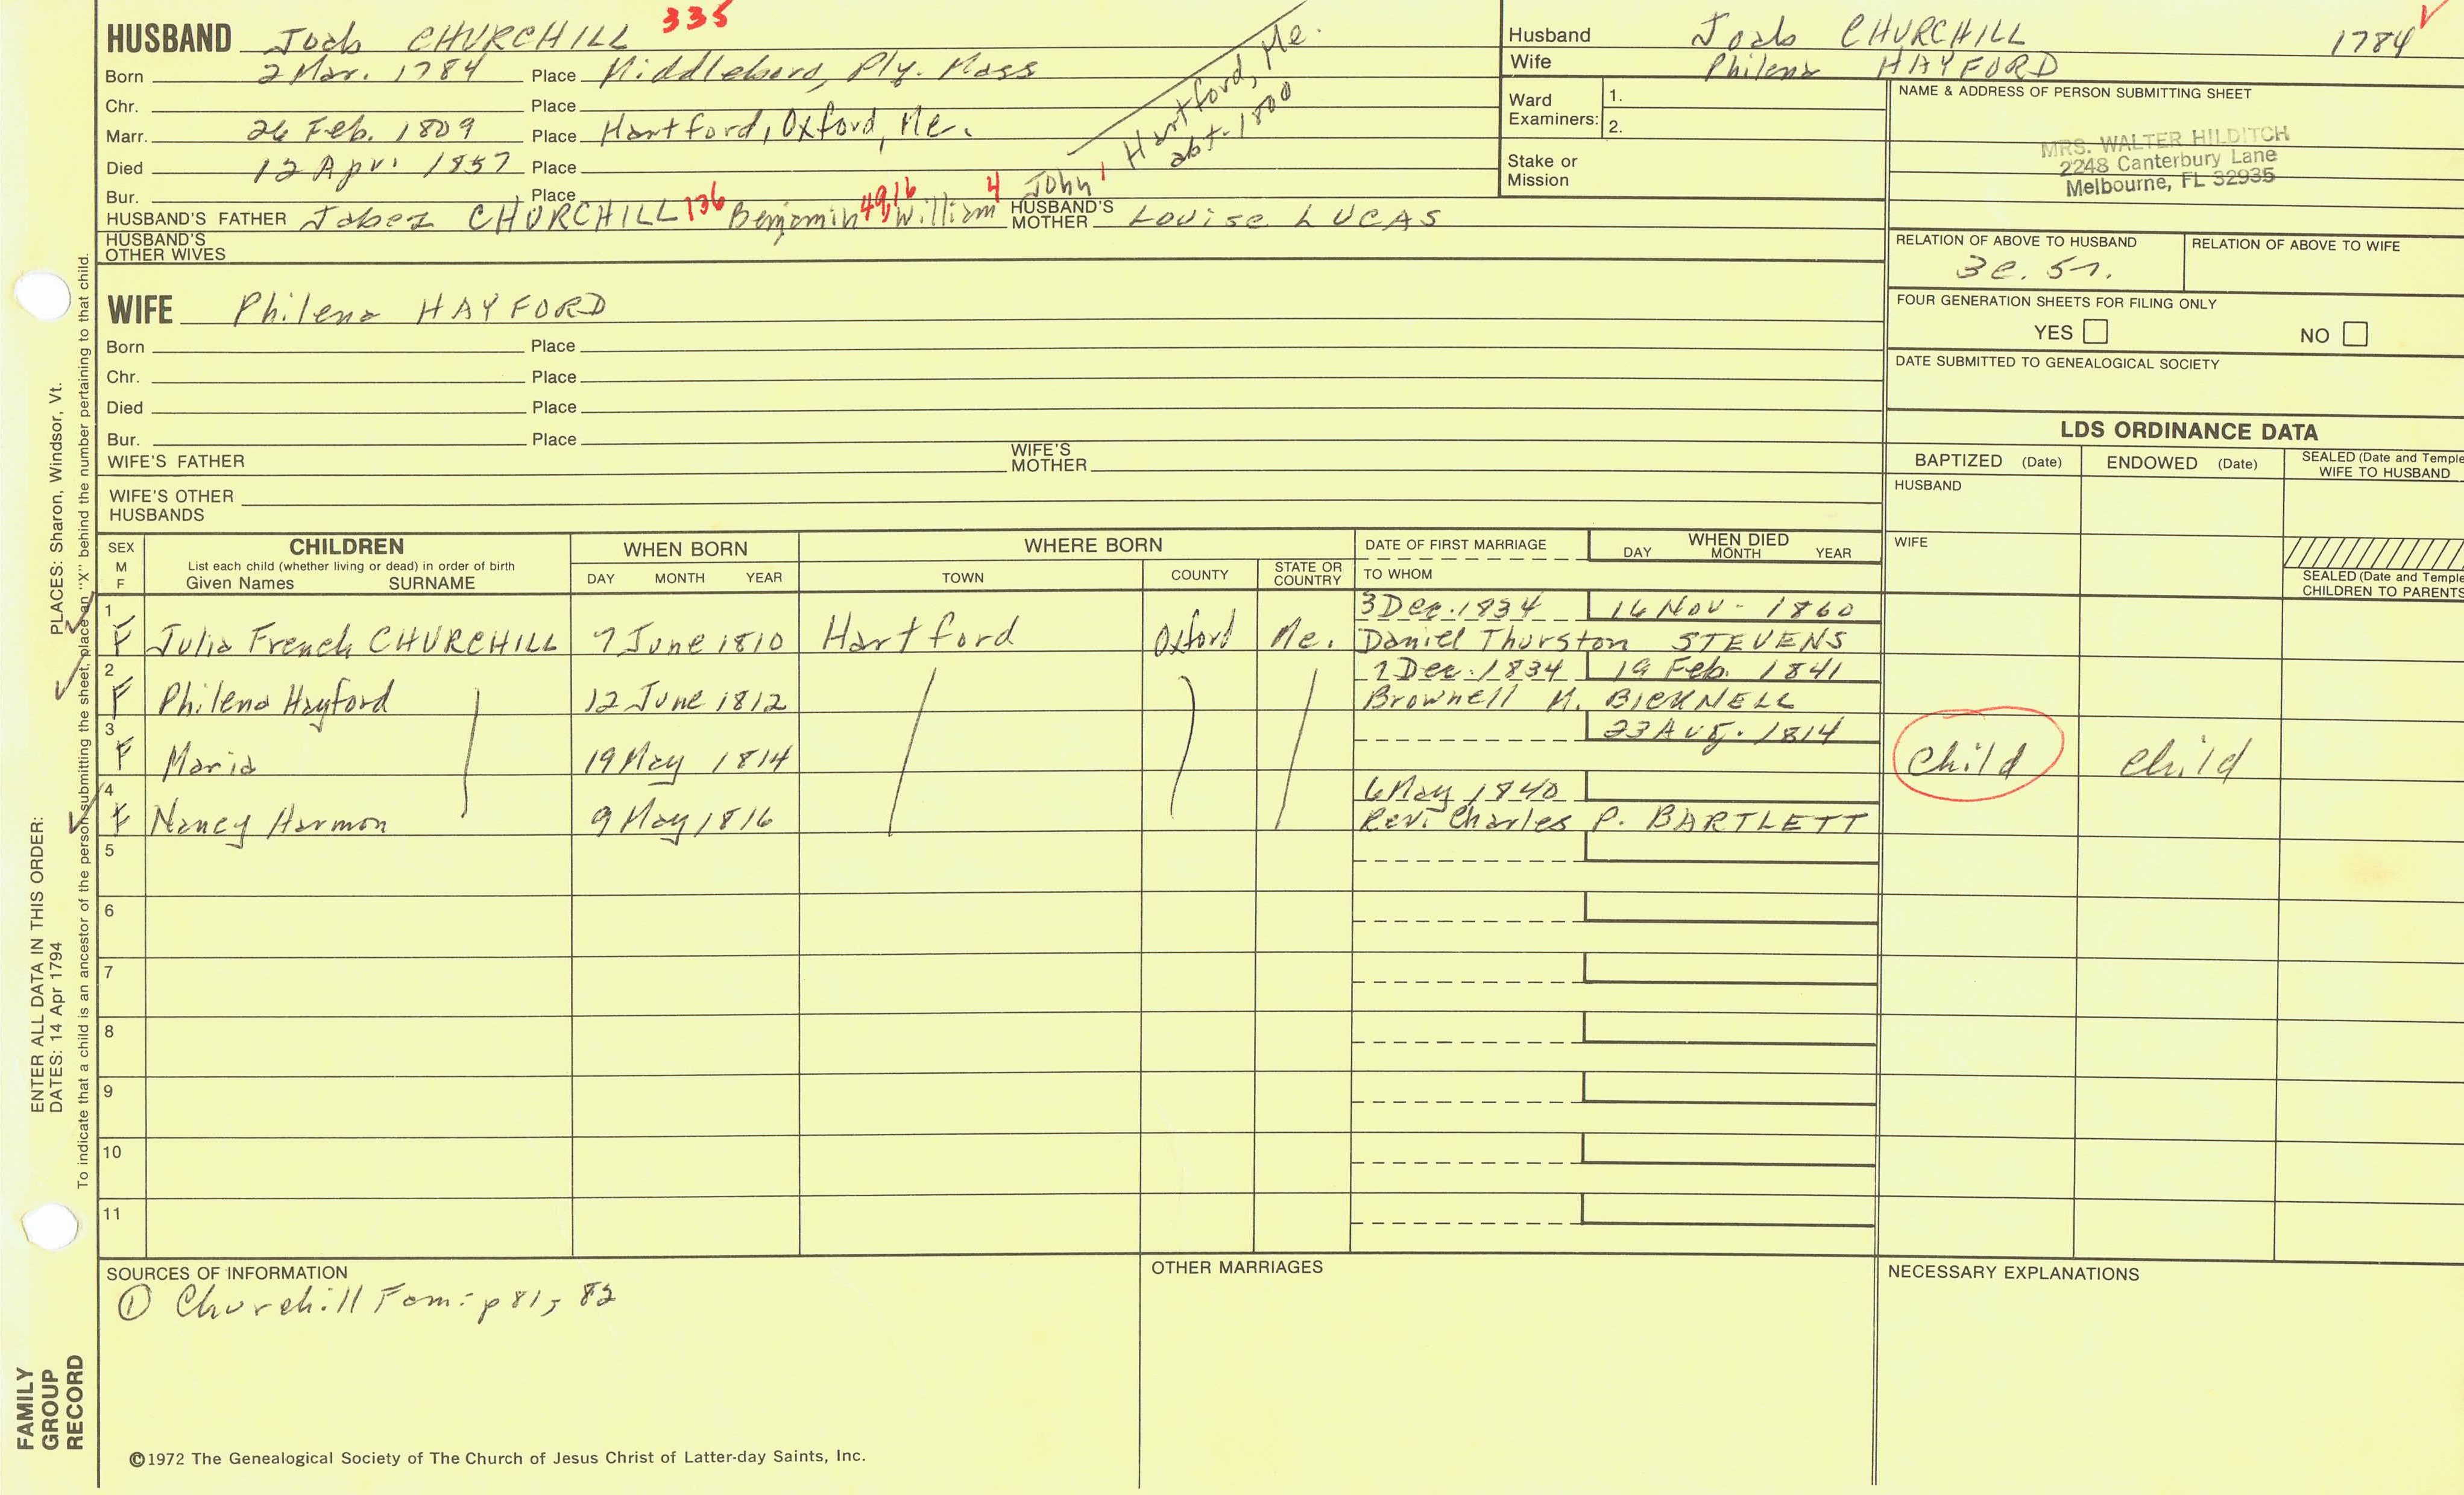 HUSBAND Joab CHURCHILL 335
Born 2 Mar. 1784 Place Middleboro, Ply. Mass
Chr. Place
Marr. 26 Feb. 1809 Place Hartford, Oxford, Me.
Died 12 Apr. 1857 Place
Bur. Place
Hartford, Me.
abt. 1800
HUSBAND'S FATHER Jabez CHURCHILL 136 Benjamin 49,16 William 4 John 1 HUSBAND'S MOTHER Louise LUCAS
HUSBAND'S OTHER WIVES
WIFE Philena HAYFORD
Born Place
Chr. Place
Died Place
Bur. Place
WIFE'S FATHER WIFE'S MOTHER
WIFE'S OTHER HUSBANDS
Husband Joab CHURCHILL 1784
Wife Philena HAYFORD
Ward Examiners: 1.
2.
Stake or Mission
NAME & ADDRESS OF PERSON SUBMITTING SHEET
MRS. WALTER HILDITCH
2248 Canterbury Lane
Melbourne, FL 32935
RELATION OF ABOVE TO HUSBAND RELATION OF ABOVE TO WIFE
3c. 5r.
FOUR GENERATION SHEETS FOR FILING ONLY
YES NO
DATE SUBMITTED TO GENEALOGICAL SOCIETY
LDS ORDINANCE DATA
BAPTIZED (Date) ENDOWED (Date) SEALED (Date and Temple WIFE TO HUSBAND
HUSBAND
WIFE
SEALED (Date and Temple
CHILDREN TO PARENTS
SEX M F CHILDREN WHEN BORN WHERE BORN DATE OF FIRST MARRIAGE WHEN DIED
List each child (whether living or dead) in order of birth
Given Names SURNAME DAY MONTH YEAR TOWN COUNTY STATE OR COUNTRY TO WHOM DAY MONTH YEAR
1 3 Dec. 1834 16 Nov. 1860
F Julia French CHURCHILL 7 June 1810 Hartford Oxford Me. Daniel Thurston STEVENS
2 7 Dec. 1834 19 Feb. 1841
F Philena Hayford 12 June 1812 Brownell M. BICKNELL
3 23 Aug. 1814
F Maria 19 May 1814 Child Child
4 6 May 1840
F Nancy Harmon 9 May 1816 Rev. Charles P. BARTLETT
5
6
7
8
9
10
11
SOURCES OF INFORMATION
① Churchill Fam: p 81, 82
OTHER MARRIAGES
NECESSARY EXPLANATIONS
©1972 The Genealogical Society of The Church of Jesus Christ of Latter-day Saints, Inc.
FAMILY
GROUP
RECORD
ENTER ALL DATA IN THIS ORDER:
DATES: 14 Apr 1794 PLACES: Sharon, Windsor, Vt.
To indicate that a child is an ancestor of the person submitting the sheet, place an "X" behind the number pertaining to that child.